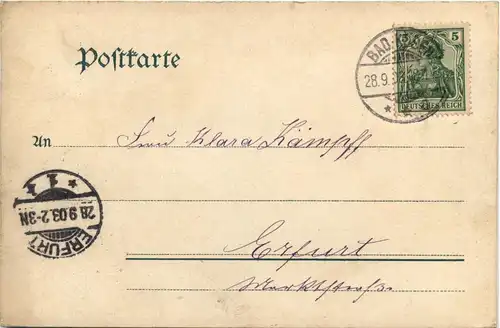 Postkarte
5
DEUTSCHES REICH
BAD
28.9.
An Frau Klara Kämpff
ERFURT
28.9.03.2-3N
1
Erfurt
Marktstraße